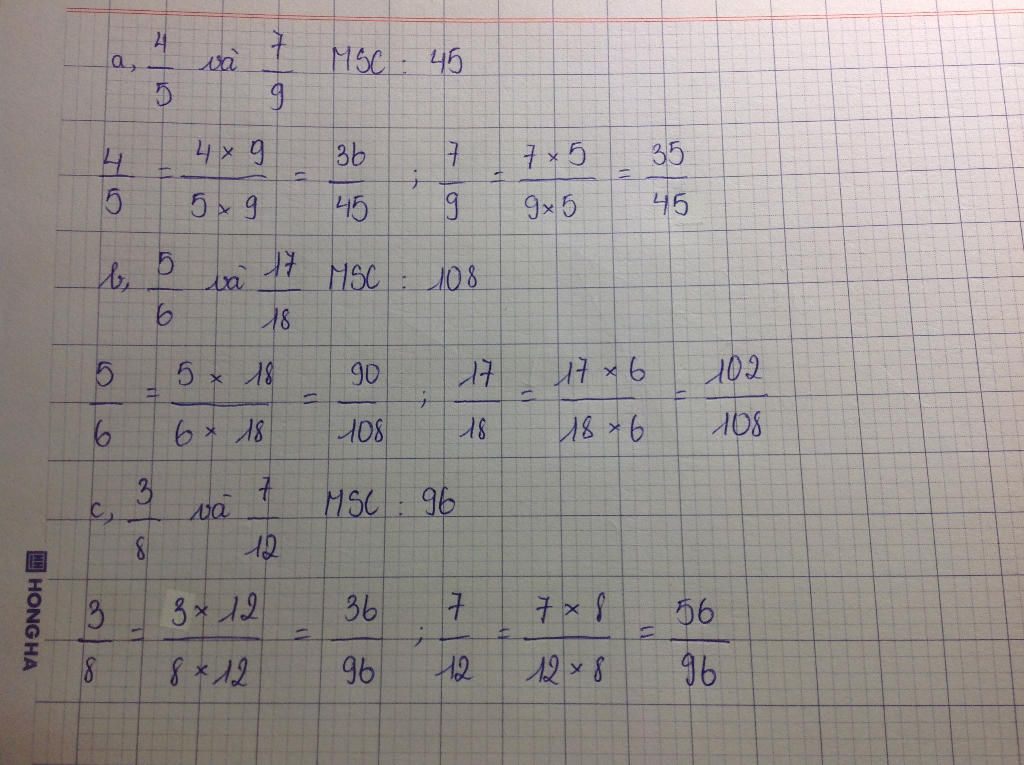 a, 4/5 và 7/9 MSC : 45
4/5 = 4 × 9/5 × 9 = 36/45 ; 7/9 = 7 × 5/9 × 5 = 35/45
b, 5/6 và 17/18 MSC : 108
5/6 = 5 × 18/6 × 18 = 90/108 ; 17/18 = 17 × 6/18 × 6 = 102/108
c, 3/8 và 7/12 MSC : 96
3/8 = 3 × 12/8 × 12 = 36/96 ; 7/12 = 7 × 8/12 × 8 = 56/96
HONG HA